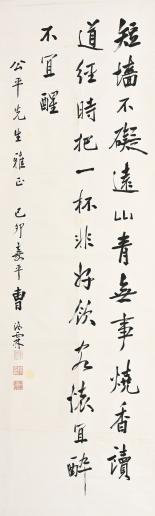 短墻不礙遠山青無事燒香讀
道經時把一杯非好飲客懷宜醉
不宜醒
公平先生雅正 己卯嘉平 曹